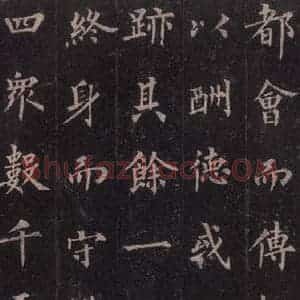 都會而傳
以酬德或
跡其餘一
終身而守
四衆數千